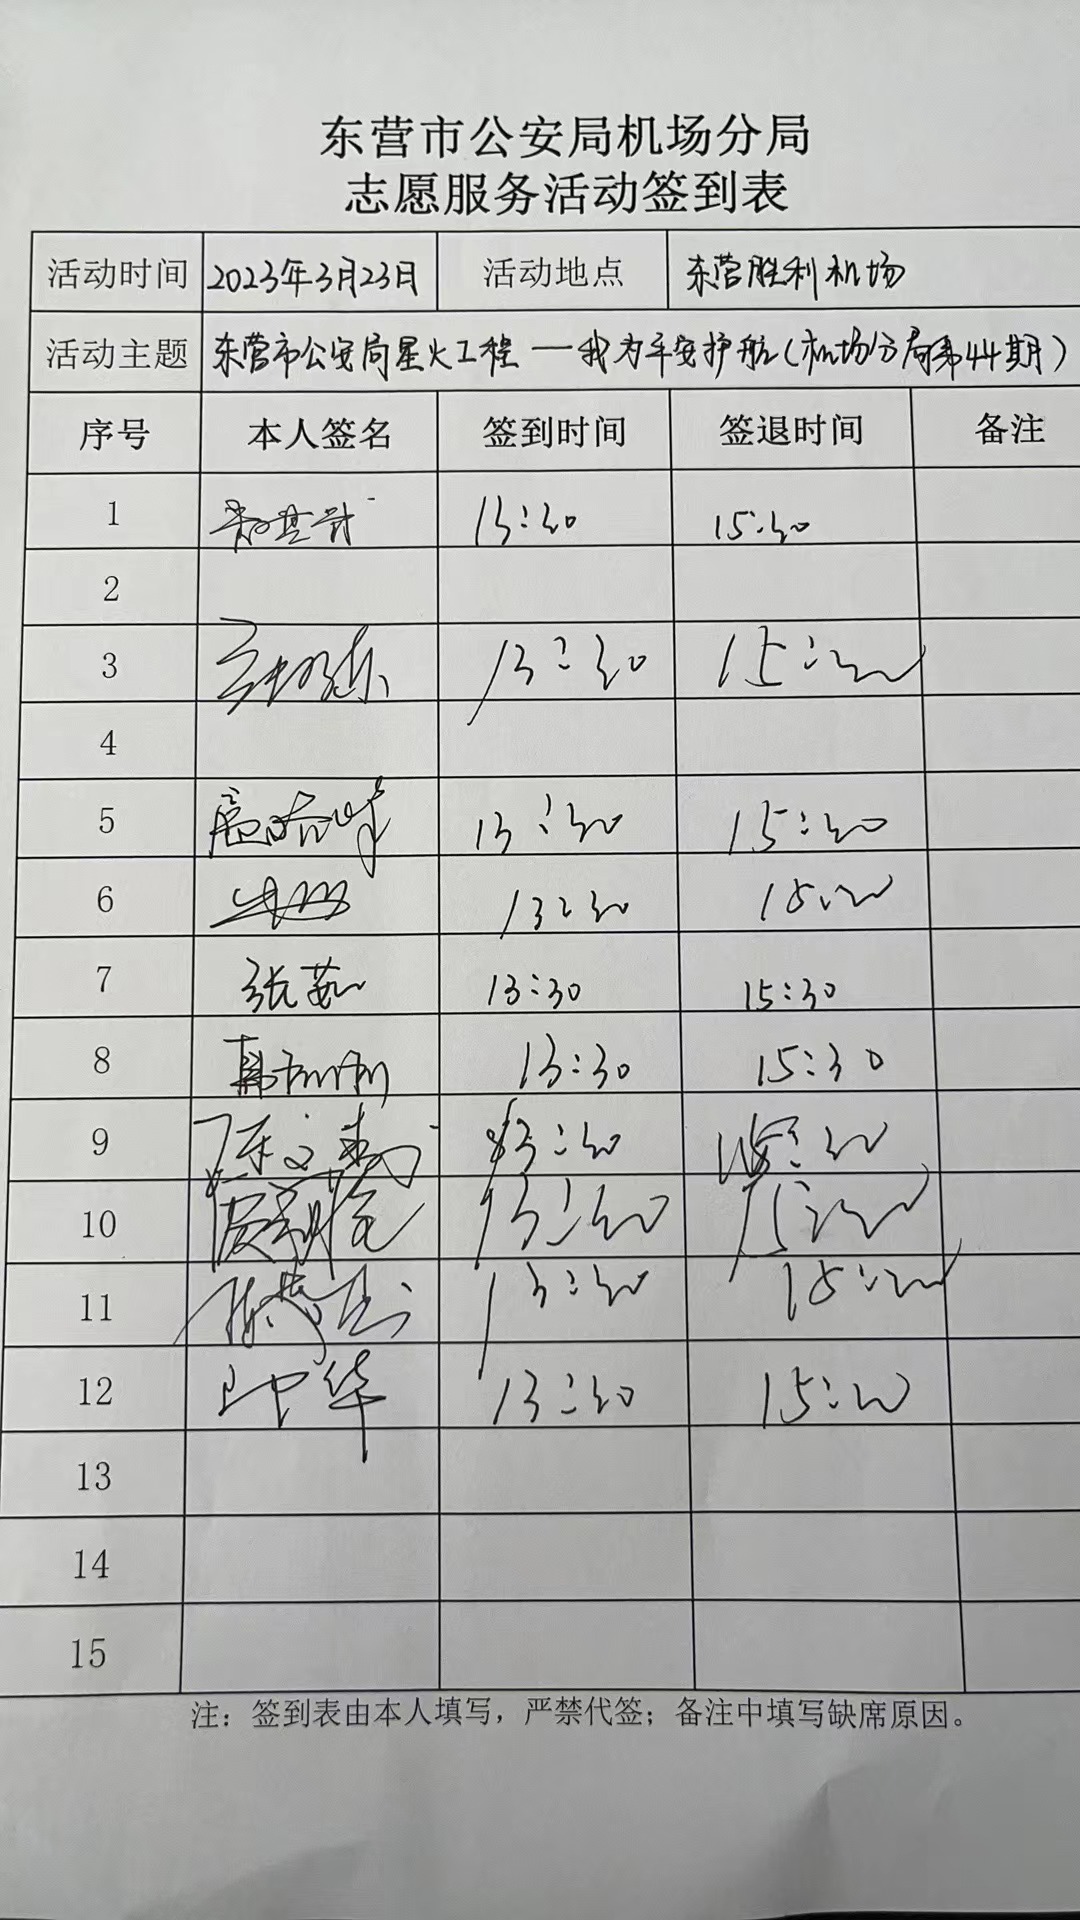 东营市公安局机场分局
志愿服务活动签到表
活动时间 2023年3月23日 活动地点 东营胜利机场
活动主题 东营市公安局星火工程——我为平安护航(机场分局第44期)
序号 本人签名 签到时间 签退时间 备注
1 13:30 15:30
2
3 13:30 15:30
4
5 13:30 15:30
6 13:30 15:30
7 张茹 13:30 15:30
8 13:30 15:30
9 13:30 15:30
10 13:30 15:30
11 13:30 15:30
12 13:30 15:30
13
14
15
注：签到表由本人填写，严禁代签；备注中填写缺席原因。